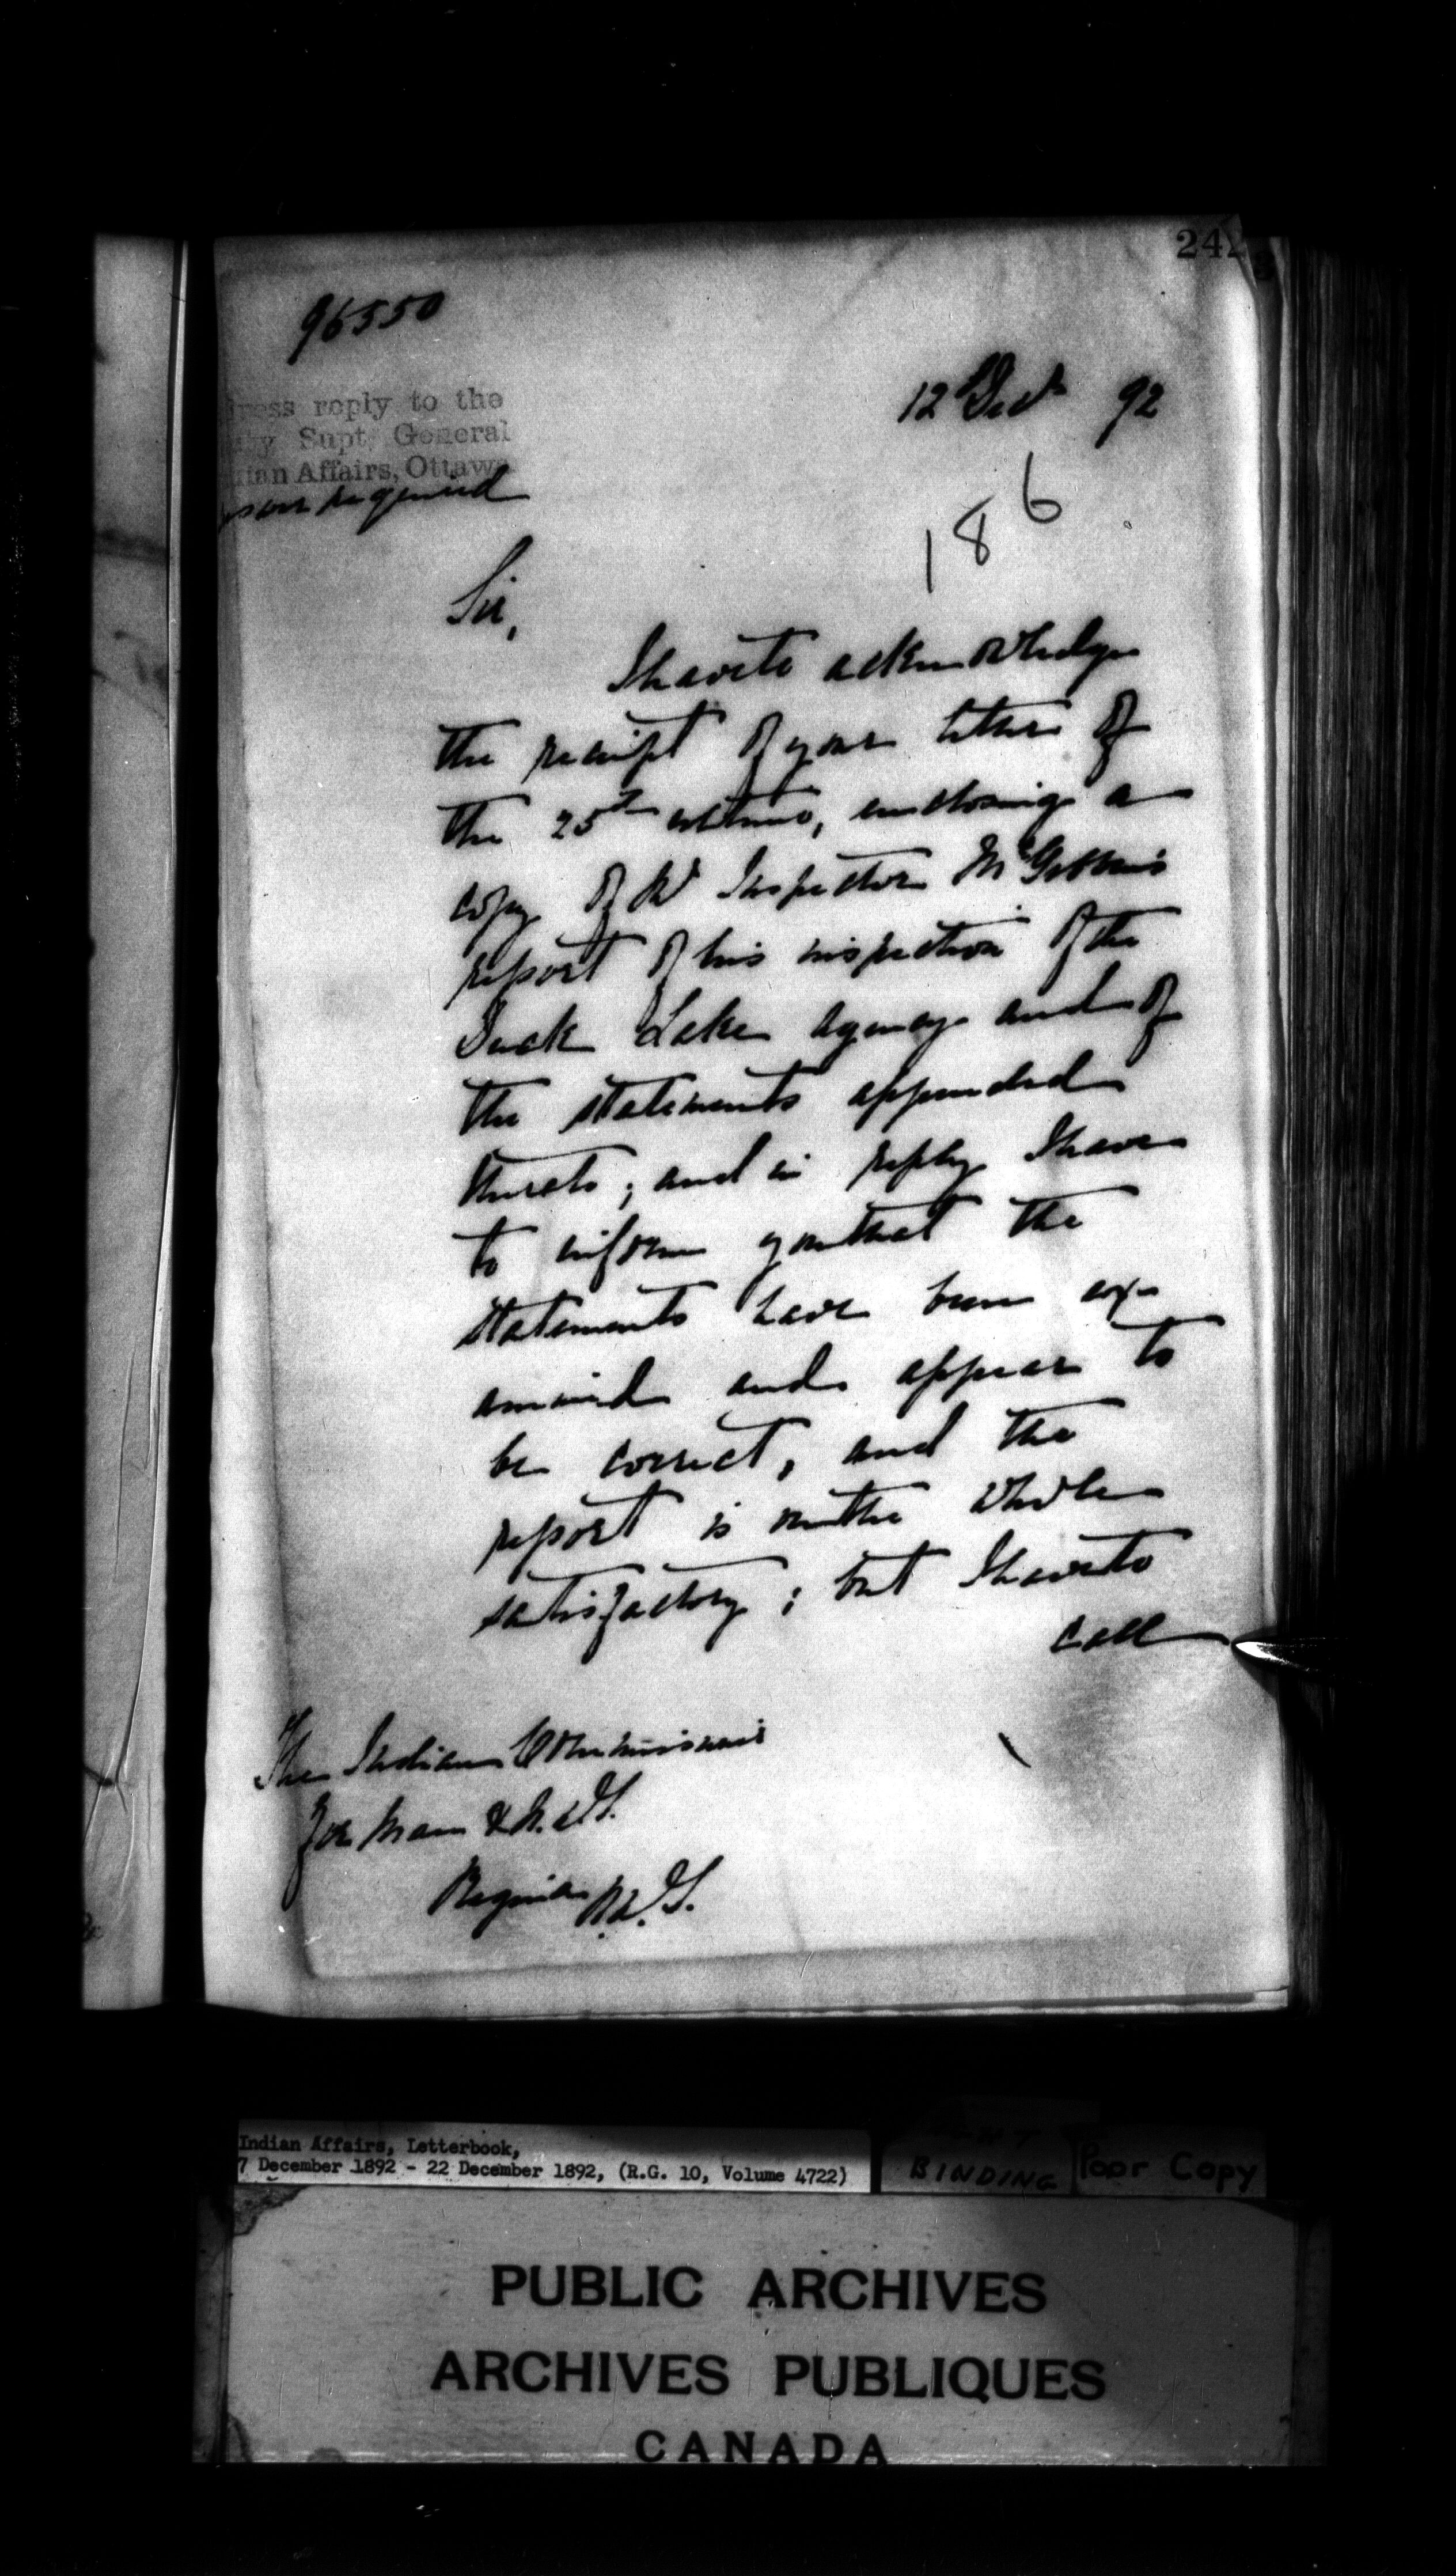 242
96550
12 Dec 92
ress reply to the
ty Supt General
ian Affairs, Ottawa
required
186
Sir,
I have to acknowledge
the receipt of your letter of
the 25th ultimo, enclosing a
copy of Mr Inspector McGibbon's
report of his inspection of the
Duck Lake Agency and of
the statements appended
thereto; and in reply I have
to inform you that the
statements have been ex-
amined and appear to
be correct, and the
report is on the whole
satisfactory; but I have to
call
The Indian Commissioner
for Man & N.W.T.
Regina N.W.T.
Indian Affairs, Letterbook,
7 December 1892 - 22 December 1892, (R.G. 10, Volume 4722)
BINDING
Poor Copy
PUBLIC ARCHIVES
ARCHIVES PUBLIQUES
CANADA